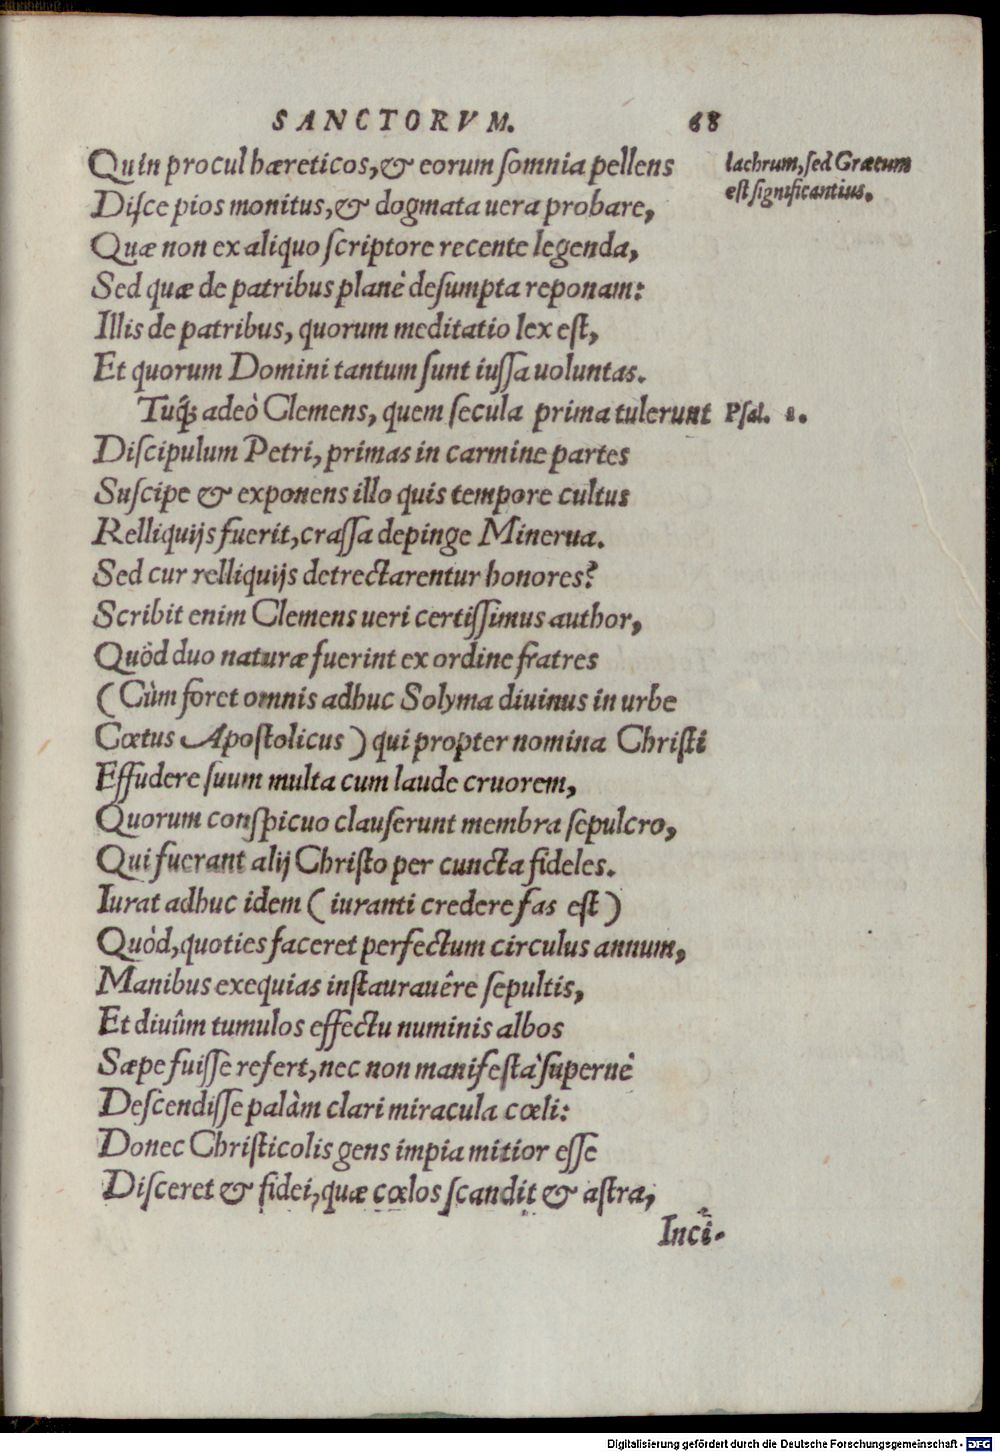 SANCTORVM. 68
Quin procul hæreticos, & eorum somnia pellens
lachrum, sed Græcum
est significantius.
Disce pios monitus, & dogmata uera probare,
Quæ non ex aliquo scriptore recente legenda,
Sed quæ de patribus planè desumpta reponam:
Illis de patribus, quorum meditatio lex est,
Et quorum Domini tantum sunt iussa uoluntas.
Tuq́; adeò Clemens, quem secula prima tulerunt
Psal. 1.
Discipulum Petri, primas in carmine partes
Suscipe & exponens illo quis tempore cultus
Relliquijs fuerit, crassa depinge Minerua.
Sed cur relliquijs detrectarentur honores?
Scribit enim Clemens ueri certissimus author,
Quòd duo naturæ fuerint ex ordine fratres
(Cùm foret omnis adhuc Solyma diuinus in urbe
Cœtus Apostolicus) qui propter nomina Christi
Effudere suum multa cum laude cruorem,
Quorum conspicuo clauserunt membra sepulcro,
Qui fuerant alij Christo per cuncta fideles.
Iurat adhuc idem (iuranti credere fas est)
Quòd, quoties faceret perfectum circulus annum,
Manibus exequias instaurauêre sepultis,
Et diuûm tumulos effectu numinis albos
Sæpe fuisse refert, nec non manifesta supernè
Descendisse palàm clari miracula cœli:
Donec Christicolis gens impia mitior esse
Disceret & fidei, quæ cœlos scandit & astra,
Inci-
Digitalisierung gefördert durch die Deutsche Forschungsgemeinschaft - DFG